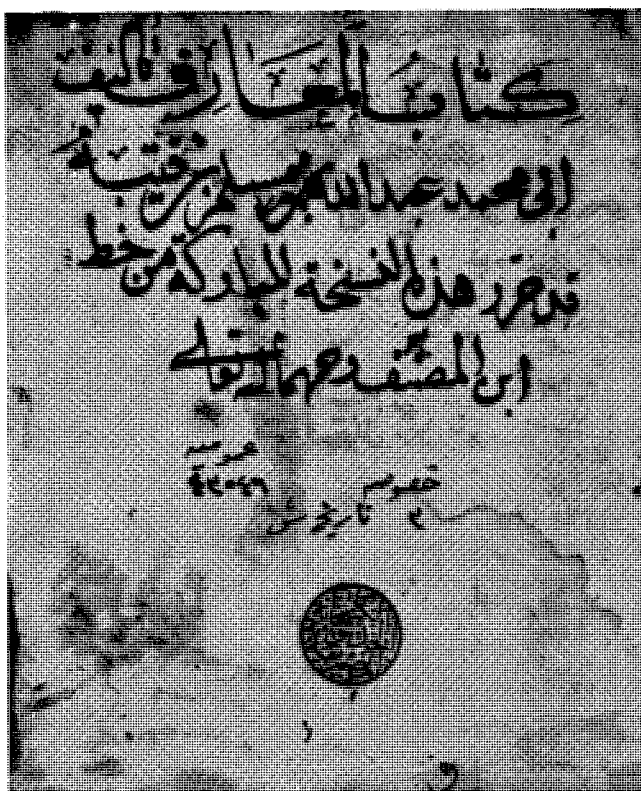 كتاب المعارف تأليف
أبي محمد عبد الله بن مسلم بن قتيبة
قد حرر هذه النسخة المباركة من خط
ابن المصنف رحمهما الله تعالى
عمومية
خصوصية
٢ تاريخ ش